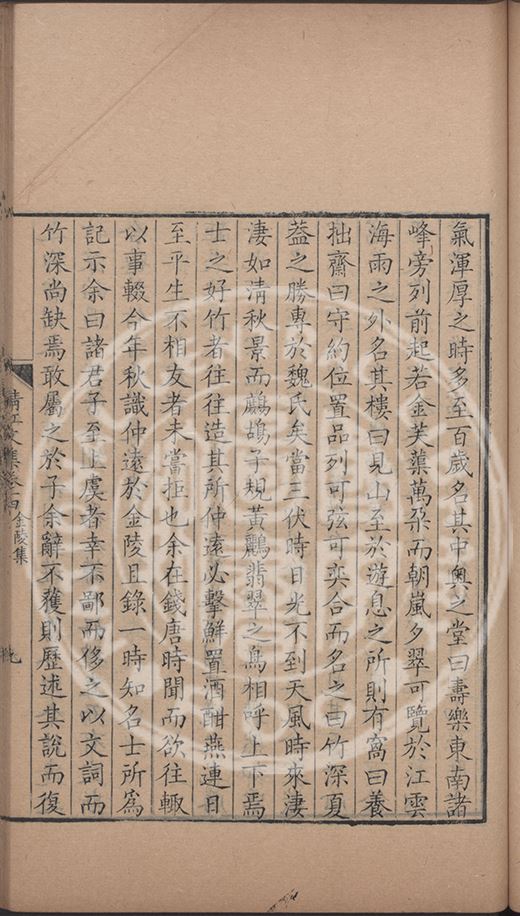 氣渾厚之時多至百歲名其中奧之堂曰壽樂東南諸
峰旁列前起若金芙蕖萬朶而朝嵐夕翠可覽於江雲
海雨之外名其樓曰見山至於遊息之所則有窩曰養
拙齋曰守約位置品列可弦可奕合而名之曰竹深夏
葢之勝專於魏氏矣當三伏時日光不到天風時來淒
淒如清秋景而鷓鴣子規黃鸝翡翠之鳥相呼上下焉
士之好竹者往往造其所仲遠必擊鮮置酒酣燕連日
至平生不相友者未嘗拒也余在錢唐時聞而欲往輙
以事輟今年秋識仲遠於金陵且錄一時知名士所爲
記示余曰諸君子至上虞者幸不鄙而侈之以文詞而
竹深尚缺焉敢屬之於子余辭不獲則歷述其說而復
清江文集卷四 金陵集